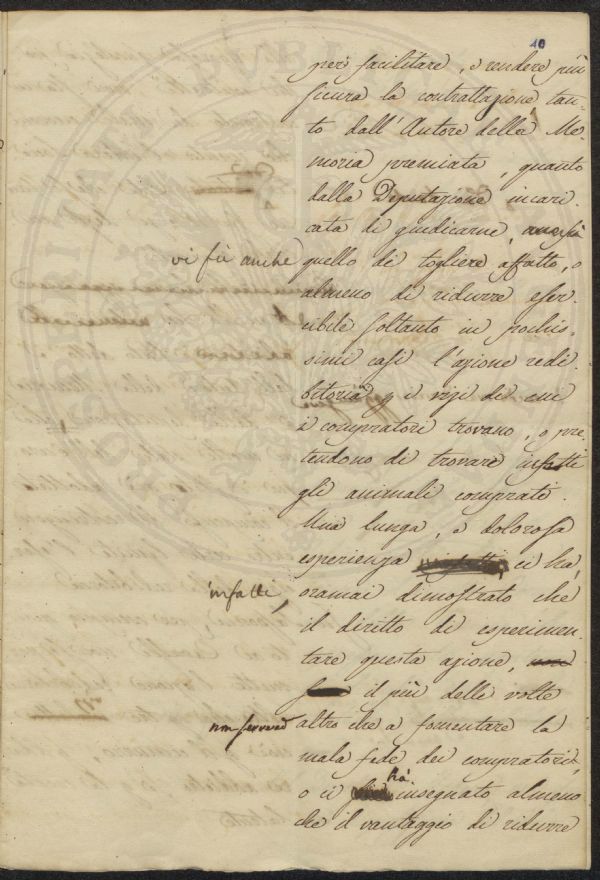 10
per facilitare, e rendere più
sicura la contrattazione, tan-
to dall'Autore della Me-
moria premiata, quanto
dalla Deputazione incari-
cata di giudicarne,
vi fù anche quello di togliere affatto, o
almeno di ridurre eser-
cibile soltanto in pochis-
simi casi l'azione redi-
bitoria p i vizi di cui
i compratori trovano, o pre-
tendono di trovare infetti
gli animali comprati.
Una lunga, e dolorosa
esperienza ci hà
infatti, oramai dimostrato che
il diritto di esperimen-
tare questa azione, non
il più delle volte
non serve altro che a fomentare la
mala fede dei compratori,
o ci hà insegnato almeno
che il vantaggio di ridurre